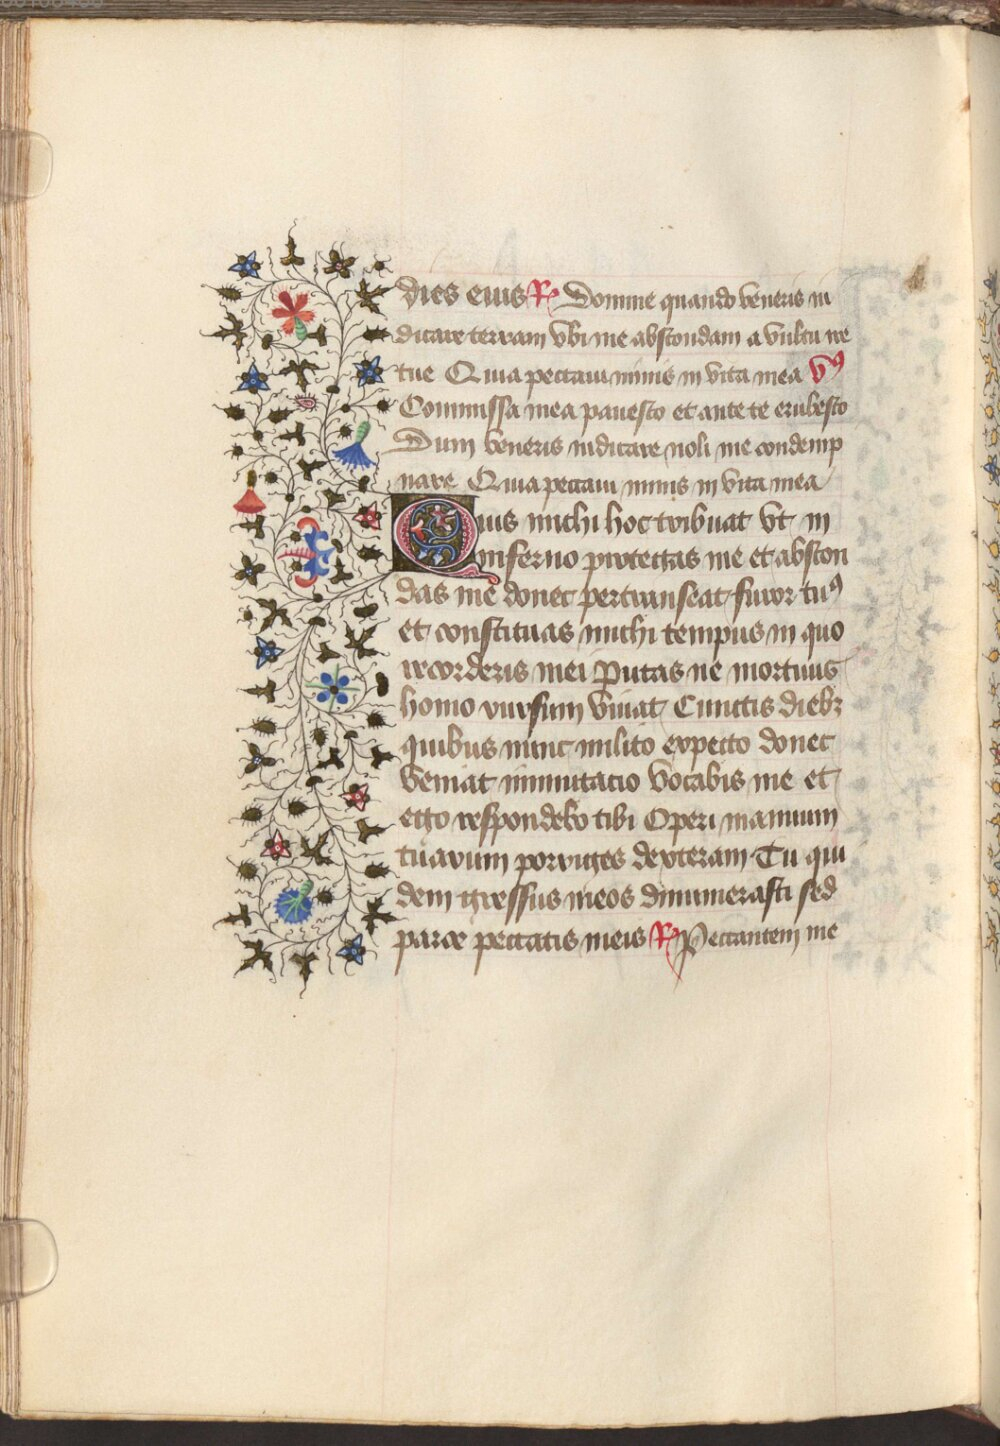 dies eius R Domine quando veneris iu
dicare terram vbi me abscondam a vultu ire
tue Quia peccaui nimis in vita mea v9
Commissa mea pauesco et ante te erubesco
Dum veneris iudicare noli me condemp
nare Quia peccaui nimis in vita mea
Quis michi hoc tribuat vt in
inferno protegas me et abscon
das me donec pertranseat furor tu9
et constituas michi tempus in quo
recorderis mei Putas ne mortuus
homo rursum viuat Cunctis dieb3
quibus nunc milito expecto donec
veniat inmutacio vocabis me et
ego respondebo tibi Operi manuum
tuarum porriges dexteram Tu qui
dem gressus meos dinumerasti sed
parce peccatis meis R Peccantem me